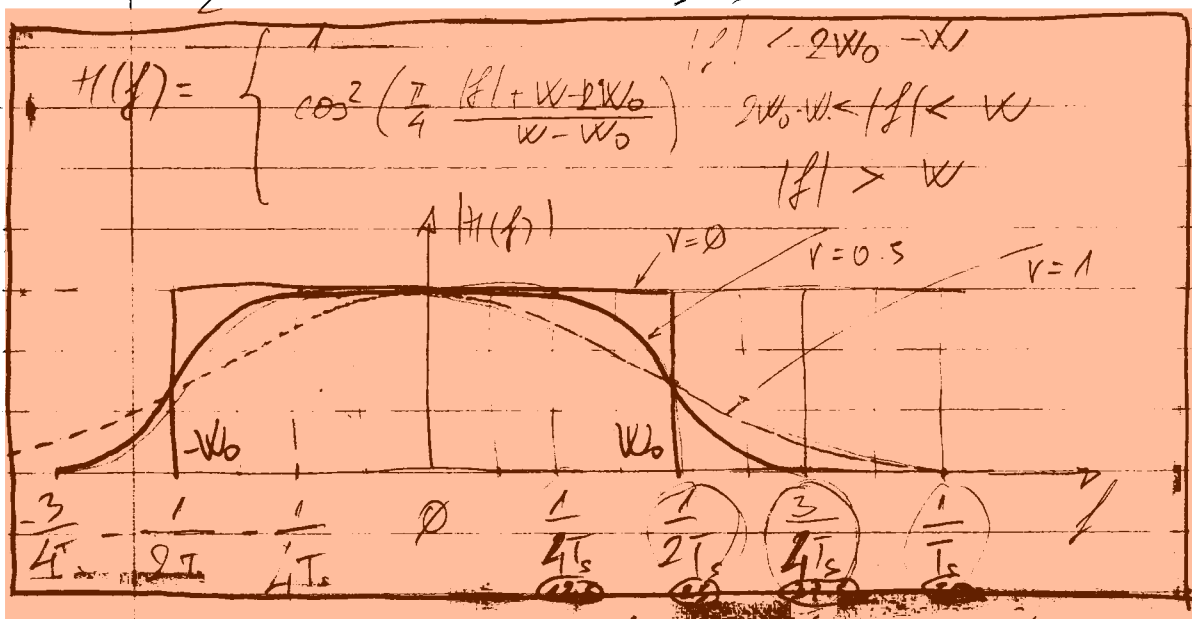 1 |f| < 2W₀ - W
H(f) = { cos² ( π/4 (|f| + W - 2W₀)/(W - W₀) ) 2W₀-W < |f| < W
|f| > W
|H(f)| r=Ø r=0.5 r=1
-W₀ W₀
-3/4Ts -1/2T -1/4Ts Ø 1/4Ts 1/2Ts 3/4Ts 1/Ts f